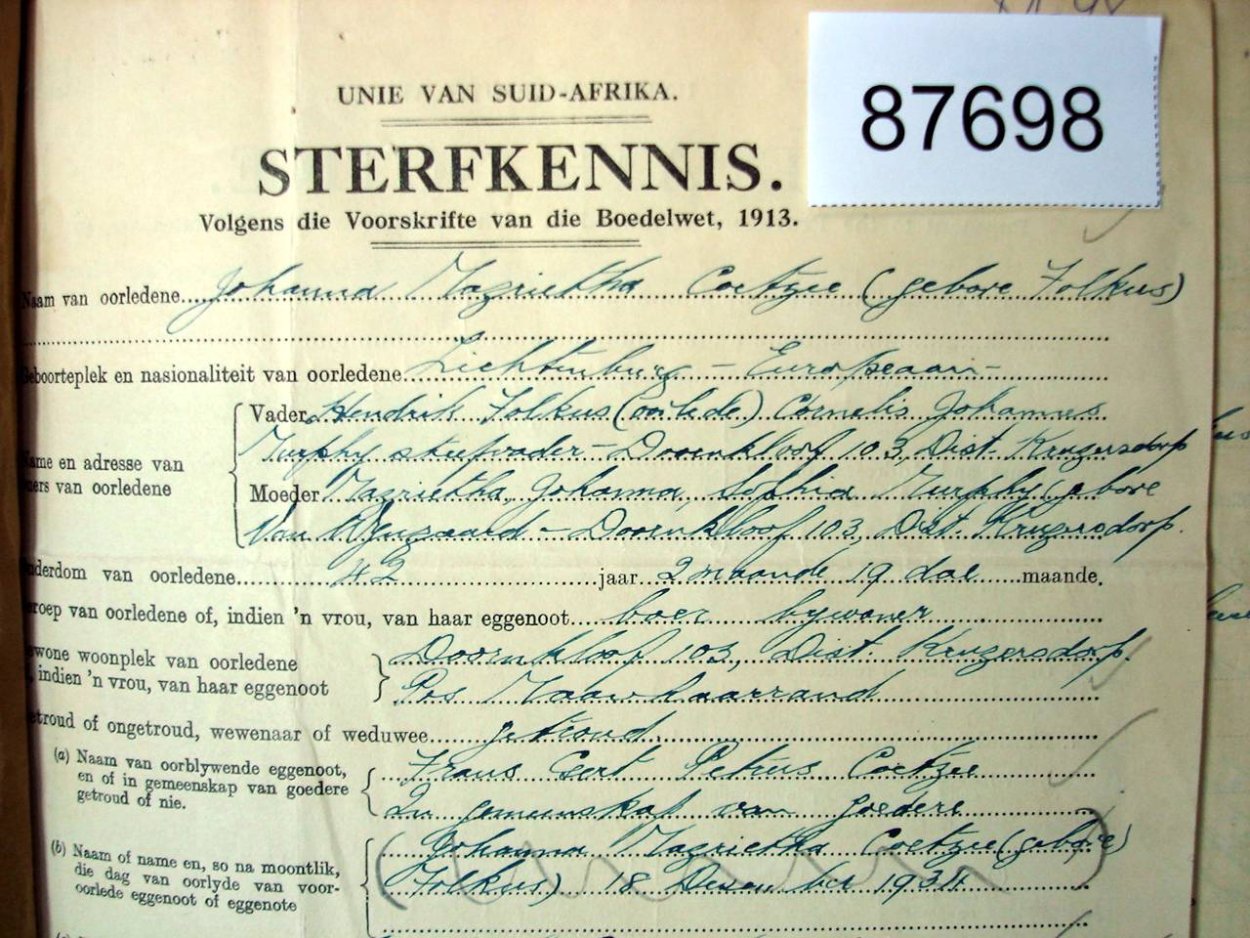 87698
UNIE VAN SUID-AFRIKA.
STERFKENNIS.
Volgens die Voorskrifte van die Boedelwet, 1913.
Naam van oorledene Johanna Magrietha Coetzee (gebore Folkus)
Geboorteplek en nasionaliteit van oorledene Lichtenburg - Europeaan -
Vader Hendrik Folkus (oorlede) Cornelis Johannes
Murphy stiefvader - Doornkloof 103, Dist. Krugersdorp
ame en adresse van
ers van oorledene
Moeder Magrietha, Johanna, Sophia Murphy (gebore
Van Wyngaard - Doornkloof 103, Dist. Krugersdorp.
nderdom van oorledene 42 jaar 2 maande 19 dae maande.
roep van oorledene of, indien 'n vrou, van haar eggenoot boer bywoner
wone woonplek van oorledene
, indien 'n vrou, van haar eggenoot
Doornkloof 103, Dist Krugersdorp.
Pos Maanhaarrand
etroud of ongetroud, wewenaar of weduwee getroud.
(a) Naam van oorblywende eggenoot,
en of in gemeenskap van goedere
getroud of nie.
Frans Gert Petrus Coetzee
In gemeenskap van goedere
(b) Naam of name en, so na moontlik,
die dag van oorlyde van voor-
oorlede eggenoot of eggenote
(Johanna Magrietha Coetzee (gebore)
Folkus) 18 Desember 1934